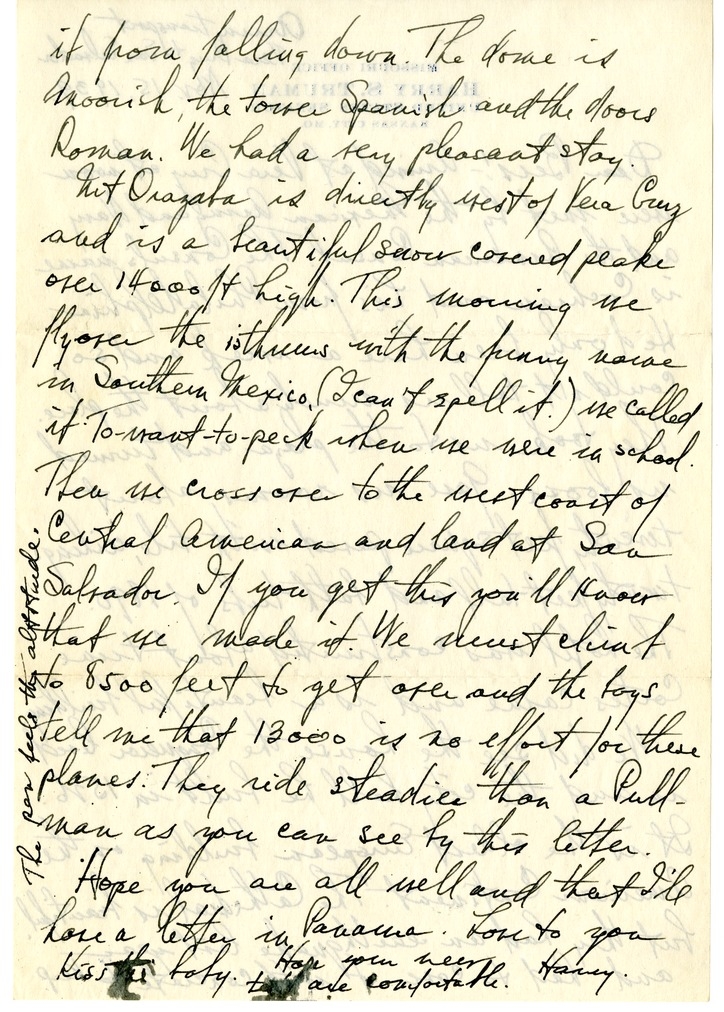 it from falling down. The dome is
Moorish, the tower Spanish and the doors
Roman. We had a very pleasant stay.
Mt Orazaba is directly west of Vera Cruz
and is a beautiful snow covered peake
over 14000 ft high. This morning we
fly over the isthmus with the funny name
in Southern Mexico, (I can't spell it.) we called
it To-want-to-peck when we were in school.
Then we cross over to the west coast of
Central American and land at San
Salvador. If you get this you'll know
that we made it. We must climb
to 8500 feet to get over and the boys
tell me that 13000 is no effort for these
planes. They ride steadier than a Pull-
man as you can see by this letter.
Hope you are all well and that I'll
have a letter in Panama. Love to you
Kiss the baby. Hope your new
are comfortable. Harry.
The pen feels the altitude.
HARRY S. TRUMAN